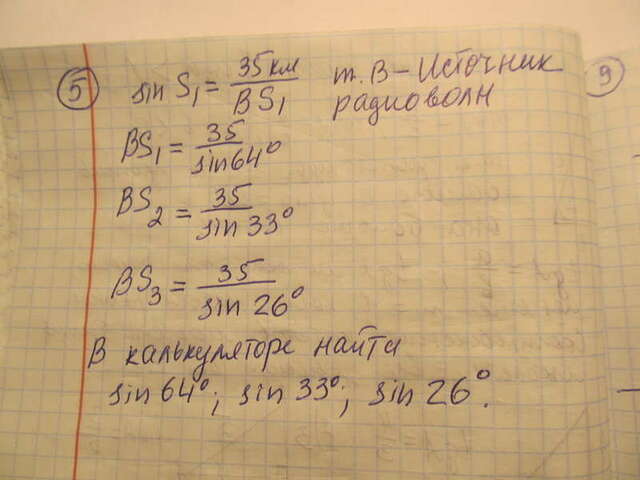 9
5 sin S₁ = 35 км / BS₁ т. В – Источник
радиоволн
BS₁ = 35 / sin 64°
BS₂ = 35 / sin 33°
BS₃ = 35 / sin 26°
В калькуляторе найти
sin 64°; sin 33°; sin 26°.